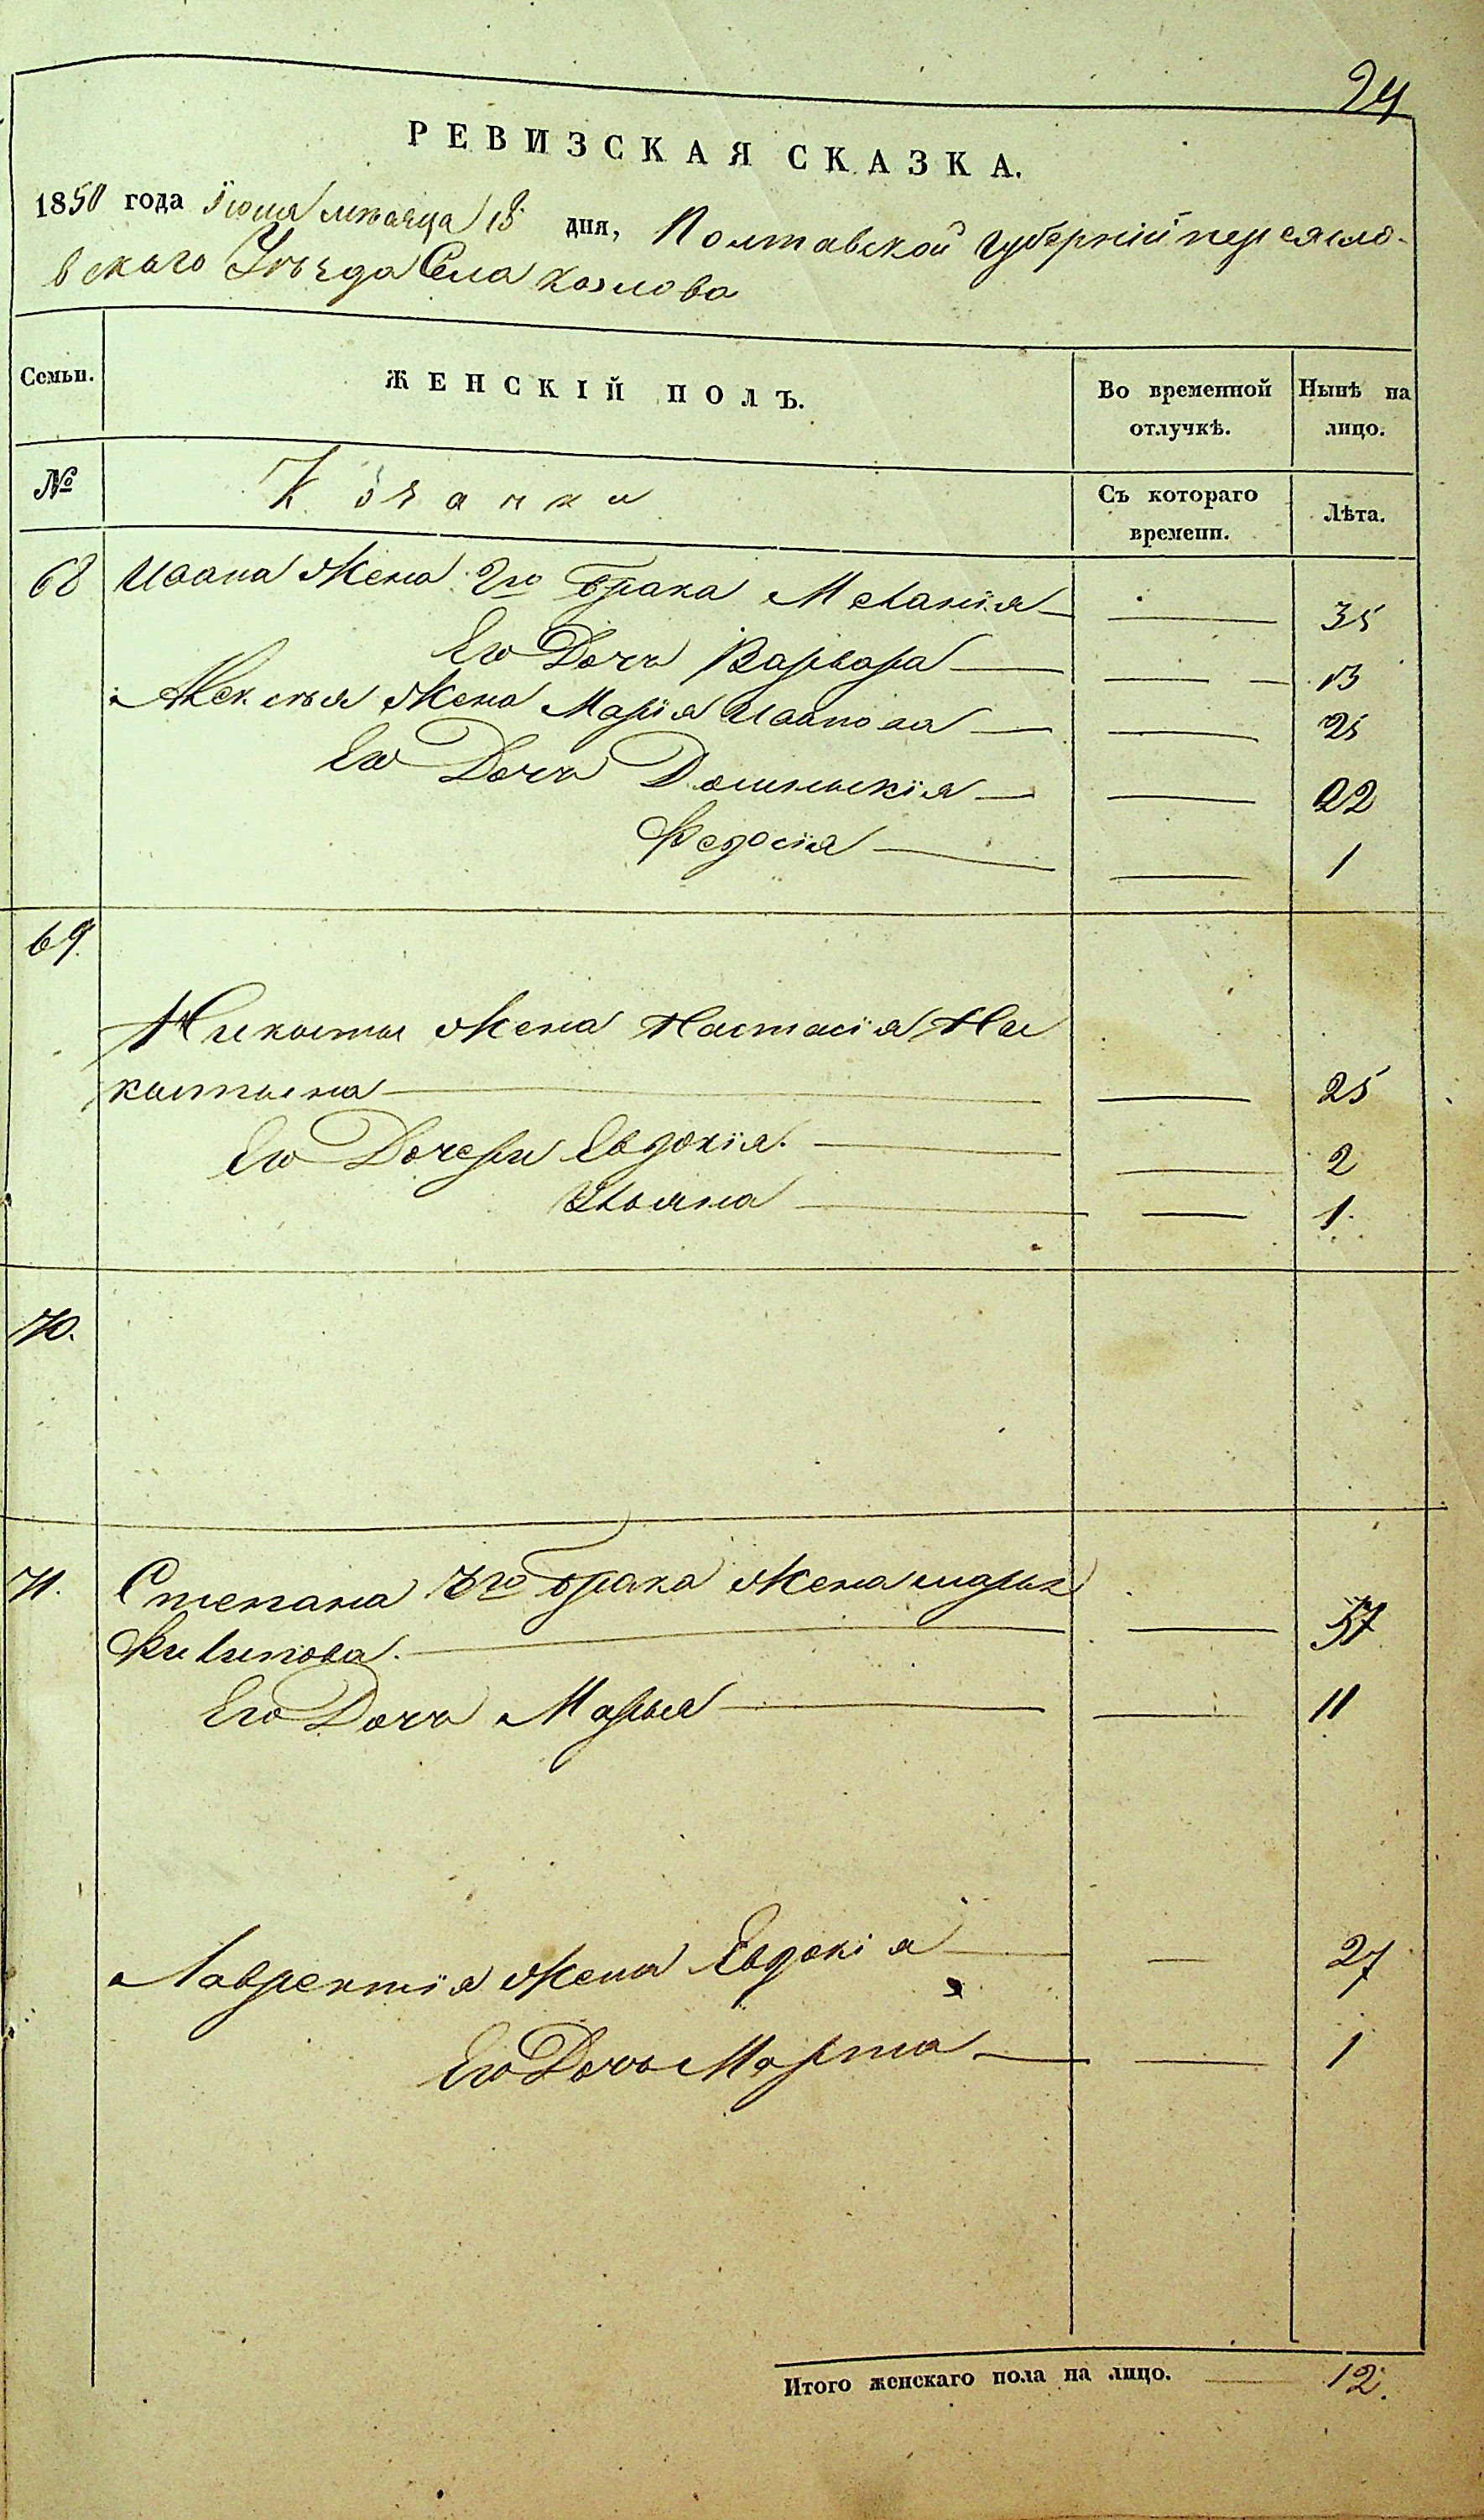 24
РЕВИЗСКАЯ СКАЗКА.
1850 года Іюня мѣсяца 18 дня, Полтавской губерніи переясло-
вскаго Уѣзда Села Козлова
Семьи. ЖЕНСКІЙ ПОЛЪ. Во временной отлучкѣ. Нынѣ на лицо.
№ Козачки Съ котораго времени. Лѣта.
68 Ивана Жена 2го брака Меланія 35
Его Дочь Варвара 13
Алексѣя Жена Марія Иванова 25
Его Дочь Домникія 22
Федосія 1
69.
Никиты Жена Настасія Ни
китина 25
Его Дочери Евдокія. 2
Ульяна 1.
70.
71. Степана 3го брака Жена марья
Филипова. 37
Его Дочь Марья 11
Лаврентія Жена Евдокія 27
Его Дочь Марта 1
Итого женскаго пола на лицо. 12.